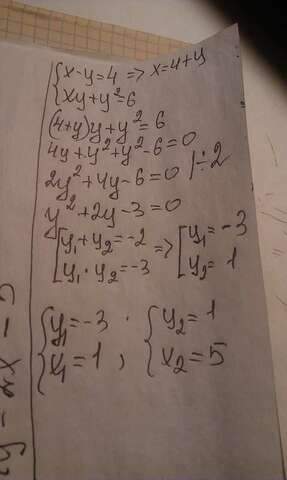 {x-y=4 => x=4+y
{xy+y²=6
(4+y)y+y²=6
4y+y²+y²-6=0
2y²+4y-6=0 |÷2
y²+2y-3=0
[y₁+y₂=-2 => [y₁=-3
[y₁·y₂=-3 [y₂=1
{y₁=-3 . {y₂=1
{x₁=1 , {x₂=5